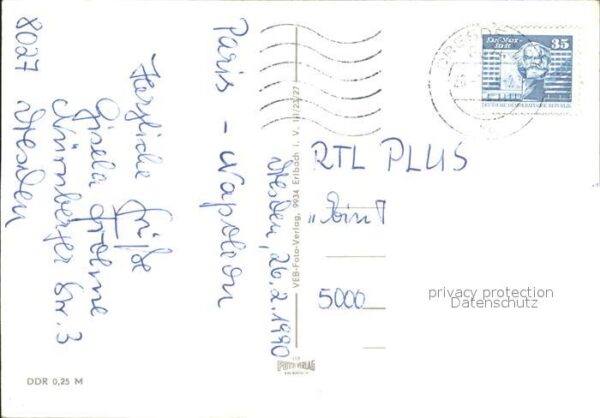 Paris - Napoleon
Herzliche Grüße
Gisela
Nürnberger Str. 3
8027 Dresden
Dresden, 26.2.1990
DDR 0,25 M
VEB-Foto-Verlag, 9934 Erlbach i. V.
FOTO VERLAG
Karl-Marx-
Stadt
35
DEUTSCHE DEMOKRATISCHE REPUBLIK
DRESDEN
RTL PLUS
5000
privacy protection
Datenschutz